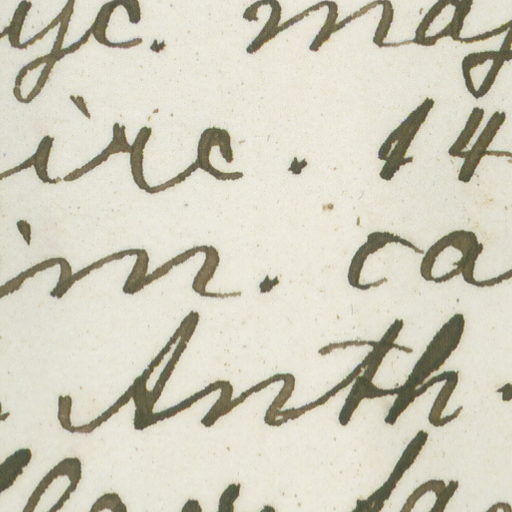 yc. maj
irc. 14
im. ca
Anth.